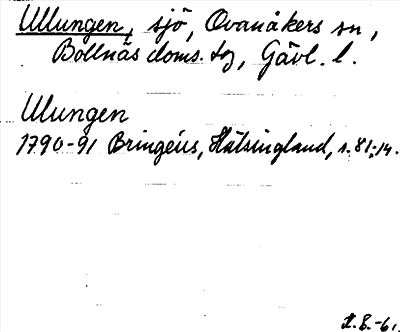 Ullungen, sjö, Ovanåkers sn,
Bollnäs doms. tg, Gävl. l.
Ulungen
1790-91 Bringéus, Hälsingland, s. 81, 14.
-61.